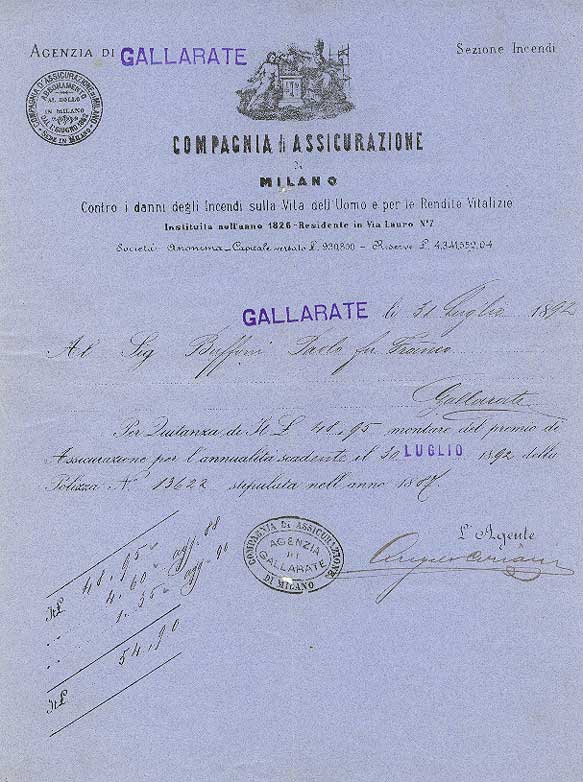 AGENZIA DI GALLARATE
Sezione Incendi
COMPAGNIA D'ASSICURAZIONE DI MILANO
ABBONAMENTO
AL BOLLO
IN MILANO
COMPAGNIA di ASSICURAZIONE
di
MILANO
Contro i danni degli Incendi sulla Vita dell'Uomo e per le Rendite Vitalizie
Instituita nell'anno 1826-Residente in Via Lauro N.º 7
Società Anonima_Capitale versato L. 930,800 - Riserve L. 4,341,552,04
GALLARATE li 31 Luglio 1892
Al Sig Buffoni Paolo fu Franco
Gallarate
Per Quitanza di It L 48.95 montare del premio di
Assicurazione per l'annualità scadente il 30 LUGLIO 1892 della
Polizza N.º 13622 stipulata nell'anno
L'Agente
COMPAGNIA DI ASSICURAZIONE
AGENZIA
DI
GALLARATE
DI MILANO
It L 48.95
4.60 agg. 88
1.35 agg. 90
It L 54,90